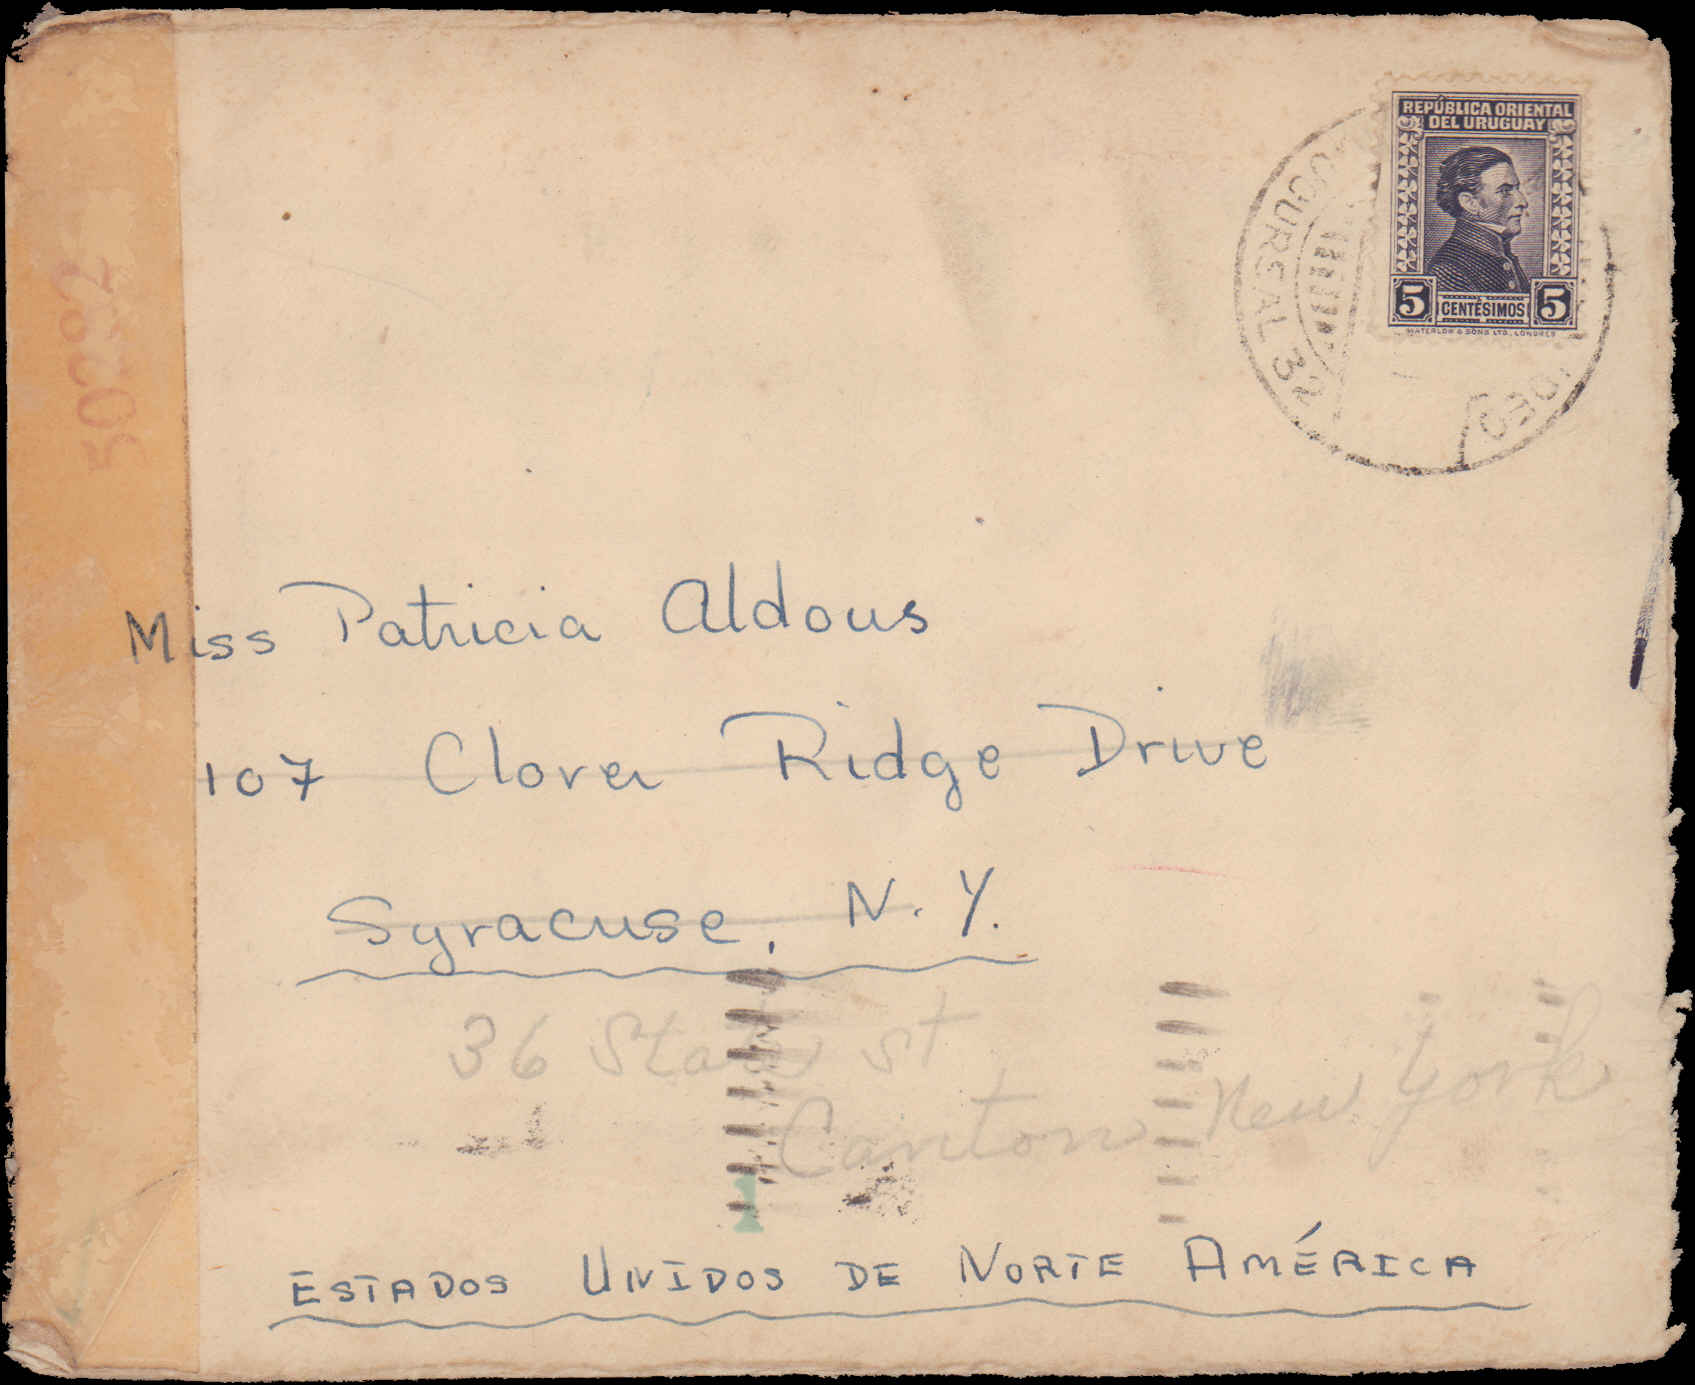 REPÚBLICA ORIENTAL
DEL URUGUAY
5 CENTÉSIMOS 5
WATERLOW & SONS LTD., LONDRES
SUCURSAL 32
50282
Miss Patricia Aldous
107 Clover Ridge Drive
Syracuse, N.Y.
36 State St
Canton New York
1
ESTADOS UNIDOS DE NORTE AMÉRICA